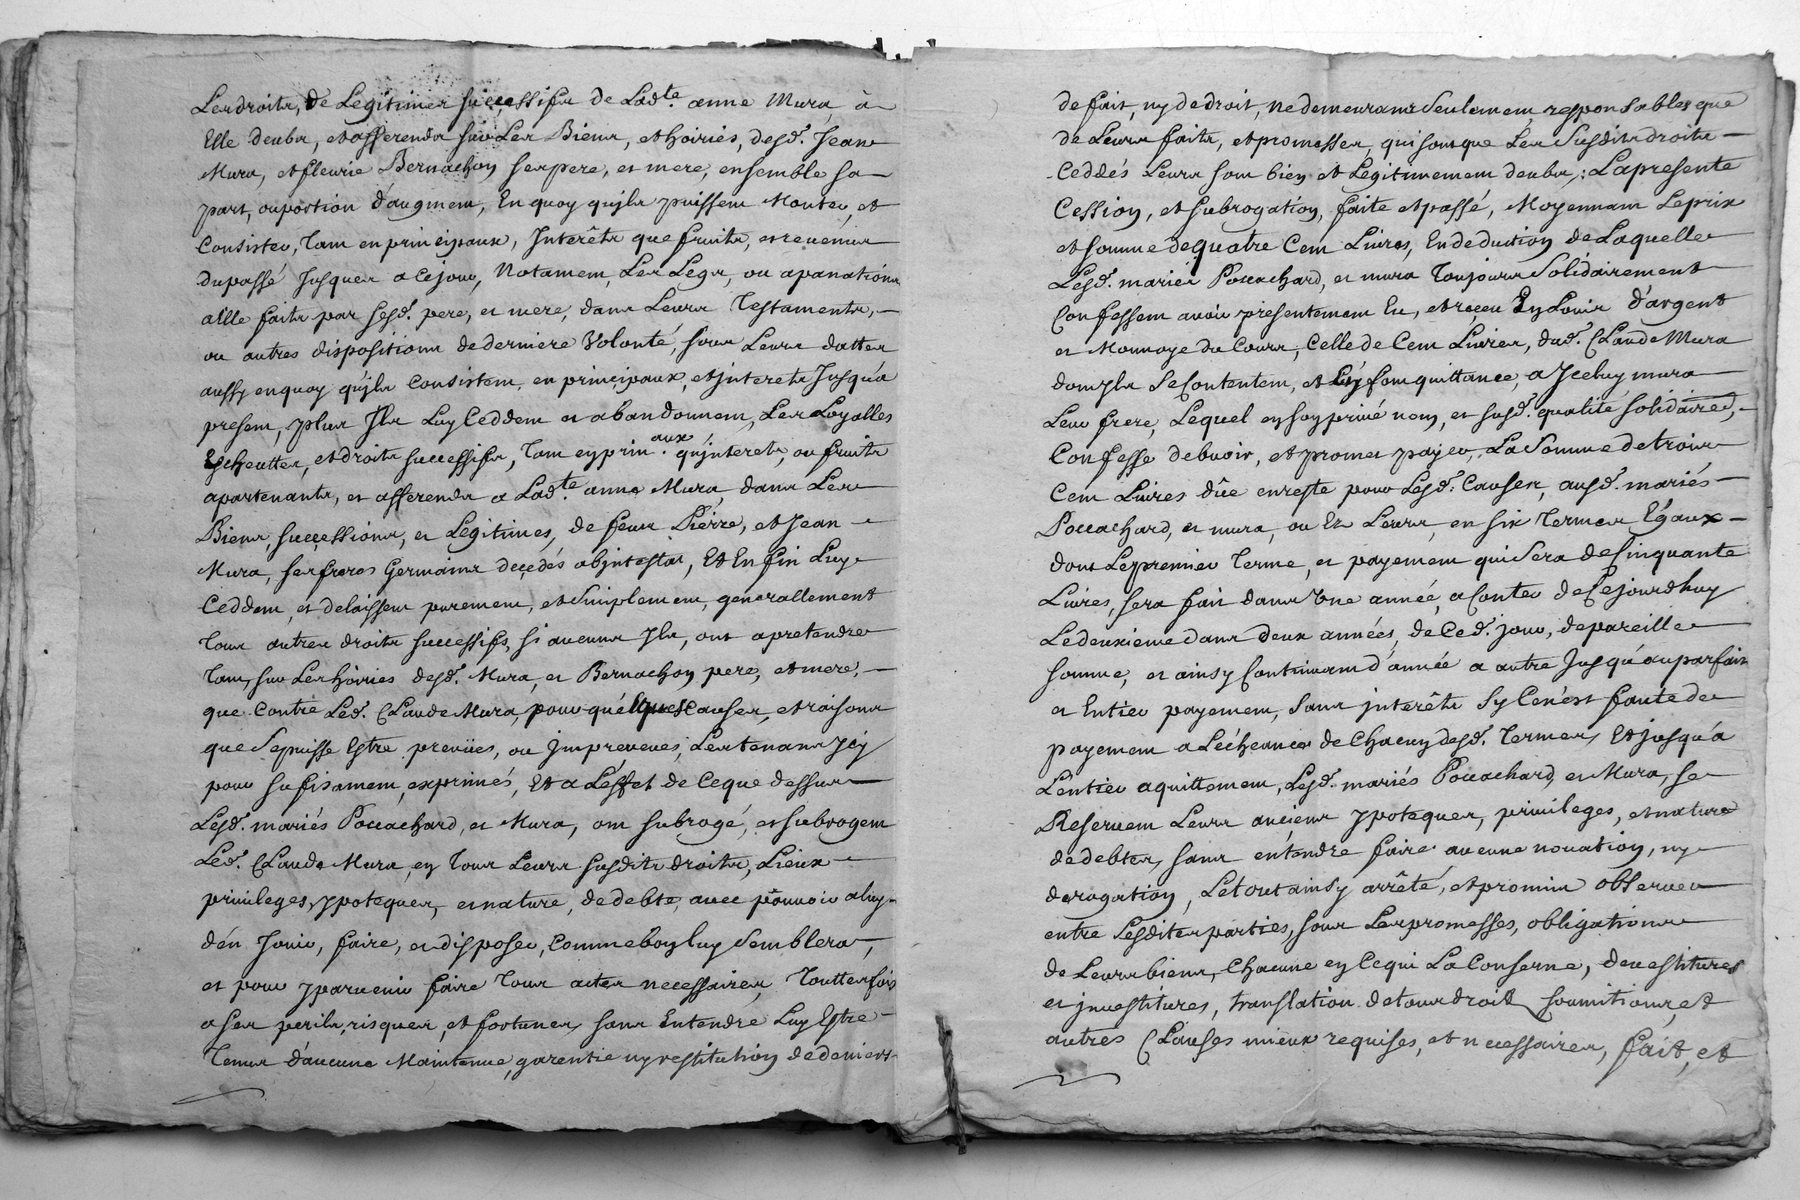 Les droits, de Legitimes successifs de Lad.te anne Mura, à
Elle deubs, et afferends sur Les Biens, et hoiries, desd. Jean
Mura, et fleurie Bernachon ses pere, et mere, ensemble sa
part, ou portion d'augment, En quoy qu'jls puissent Monter, et
Consister, Tant en principaux, Interêts que fruits, et revenus
du passé Jusques a ce jour, Notament, Les Legs, ou apanations
a Elle faits par sesd. pere, et mere, dans Leurs Testaments,
ou autres dispositions de derniere Volonté, sous Leurs dattes
aussy en quoy qu'jls Consistent, en principaux, et jnterets Jusqu'a
present, plus Jls Luy Ceddent et abandonnent, Les Loyalles
Escheuttes, et droits successifs, Tant en prin.aux qu'jnterets, ou fruits
apartenants, et afferends a Lad.te anne Mura, dans Les
Biens, successions, et Legitimes, de feus Pierre, et Jean
Mura, ses freres Germains deçedés abjntestat, Et Enfin Luy
Ceddent, et delaissent purement, et simplement, generallement
Tous autres droits successifs, si aucuns Jls, ont a pretendre
Tant, sur Les hoiries desd. Mura, et Bernachon pere, et mere,
que Contre Led. Claude Mura, pour quélques Causes, et raisons
que Se puisse Estre preveües, ou jmpreveues, Les tenans Jcy
pour sufisament, exprimés, Et a L'éffet de Ceque dessus
Lesd. mariés Pocachard, et Mura, ont subrogé, et subrogent
Led. Claude Mura, en Tous Leurs susdits droits, Lieux
privileges, ypoteques, et nature, de debte, avec pouvoir a luy
d'én Jouir, faire, et disposer, Comme bon luy Semblera,
et pour y parvenir faire Tous actes necessaires, Touttes fois
a ses perils, risques, et fortunes, sans Entendre Luy Estre
Tenus d'aucune Maintenue, garentie ny restitution de deniers
de fait, ny de droit, Ne demeurans Seulement responsables que
de Leurs faits, et promesses, qui sont que Les Susdits droits
Ceddés Leurs sont bien et Legitimement deubs; La presente
Cession, et subrogation, faite et passé, Moyennant Le prix
et somme de quatre Cent Livres, En deduction de Laquelle
Lesd. mariés Pocachard, et mura Toujours Solidairement
Confessent avoir presentement Eu, et reçeu En Louis d'argent
et Monnoye du Cours, Celle de Cent Livres, dud. Claude Mura
dont jls Se Contentent, et En font quittance, a Jceluy mura
Leur frere, Lequel en son privé nom, et susd. qualité solidaire,
Confesse debvoir, et promet payer, La Somme de trois
Cent Livres dûe en reste pour Lesd. Causes, ausd. mariés
Pocachard, et mura, ou Es Leurs, en six Termes Egaux
dont Le premier Terme, et payement qui Sera de Cinquante
Livres, sera fait dans Vne année, a Conter de Cejourdhuy
Le deuxieme dans deux années, de Ced. jour, de pareille
somme, et ainsy Continuant d'année a autre Jusqu'au parfait
et Entier payement, Sans jnterêts Sy Ce n'ést faute de
payement a L'écheance de Chacun desd. Termes, Et jusqu'a
L'éntier aquittement, Lesd. mariés Pocachard, et Mura, se
Reservent Leurs anciens ypoteques, privileges, et nature
de debtes, sans entendre faire aucune novation, ny
derogation, Le tout ainsy arrêté, et promis observer
entre Lesdites parties, sous Les promesses, obligations
de Leurs biens, Chacune en Cequi La Conserne, devestitures
et jnvestitures, translation de tous droit soumitions, et
autres Clauses mieux requises, et necessaires, fait, et